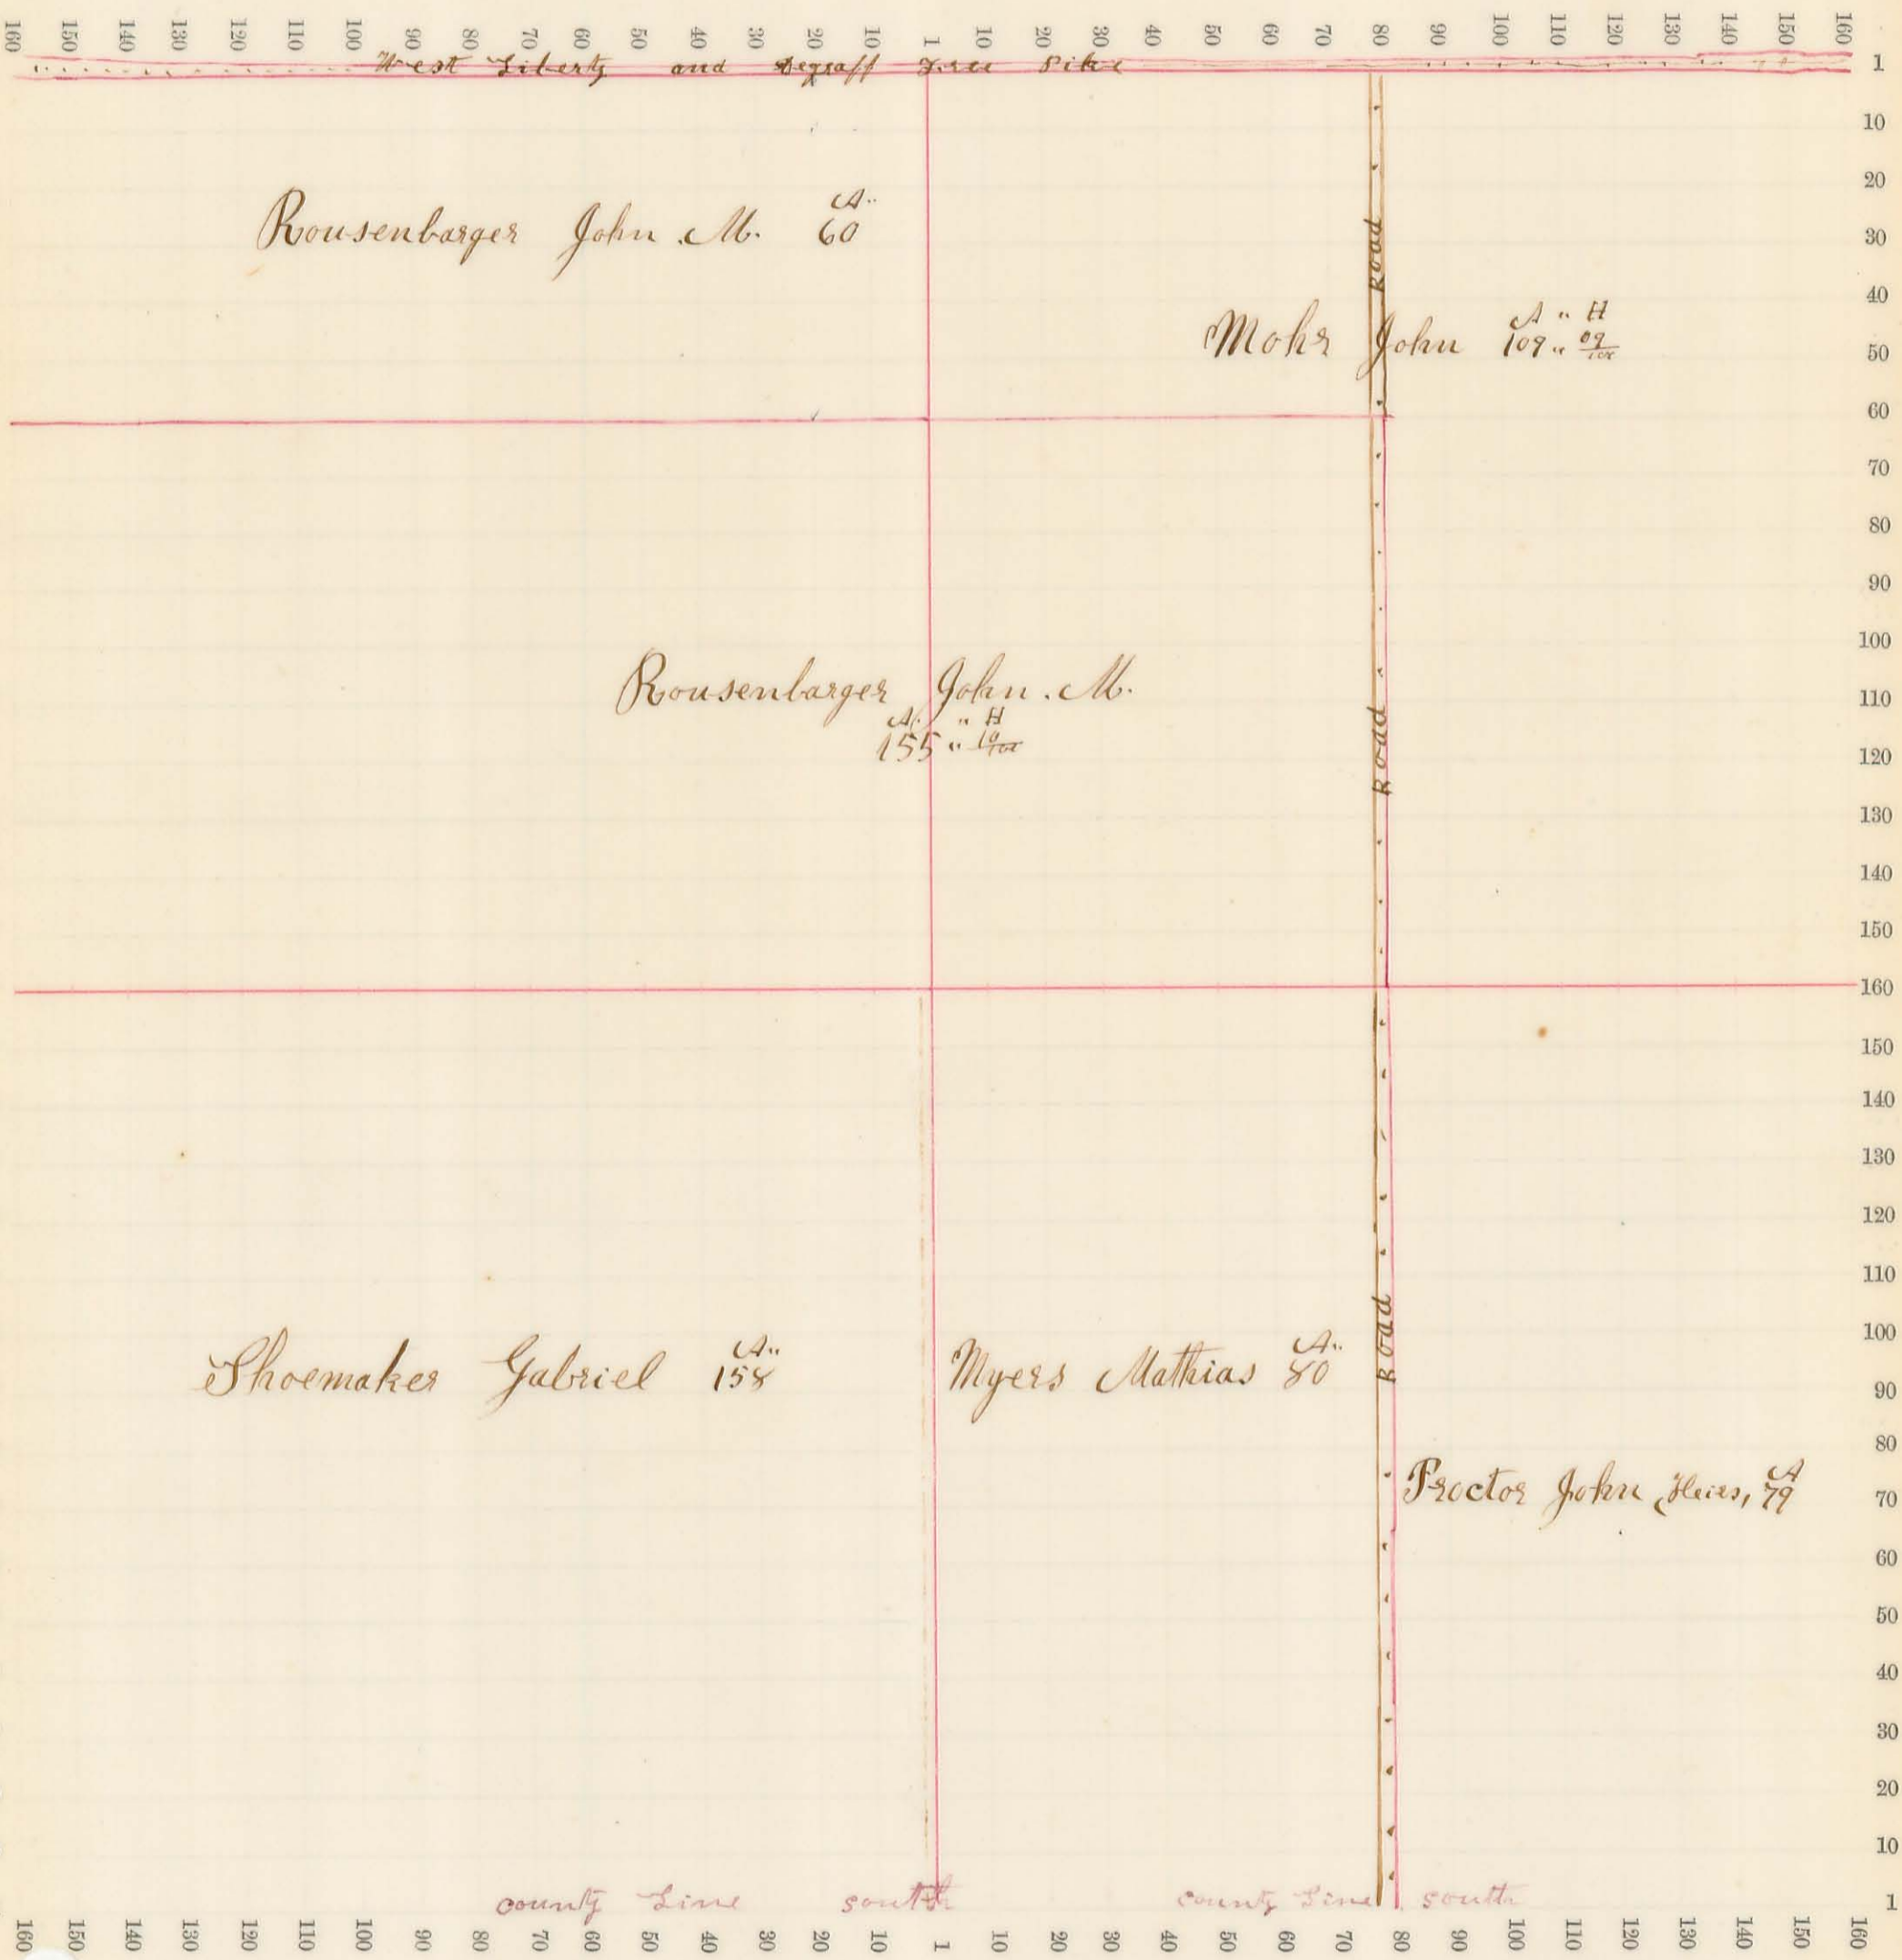 160 150 140 130 120 110 100 90 80 70 60 50 40 30 20 10 1 10 20 30 40 50 60 70 80 90 100 110 120 130 140 150 160
West Liberty and Degraff Free Pike
1
10
20
30
40
50
60
70
80
90
100
110
120
130
140
150
160
150
140
130
120
110
100
90
80
70
60
50
40
30
20
10
1
A..
Rousenbarger John .M. 60
Road
A " H
Mohr John 109 " 09/100
Rousenbarger John. M.
A. " H
155 " 10/100
Road
Road
A..
Shoemaker Gabriel 158
A..
Myers Mathias 80
A
Proctor John Heirs, 79
county Line south county Line south
160 150 140 130 120 110 100 90 80 70 60 50 40 30 20 10 1 10 20 30 40 50 60 70 80 90 100 110 120 130 140 150 160